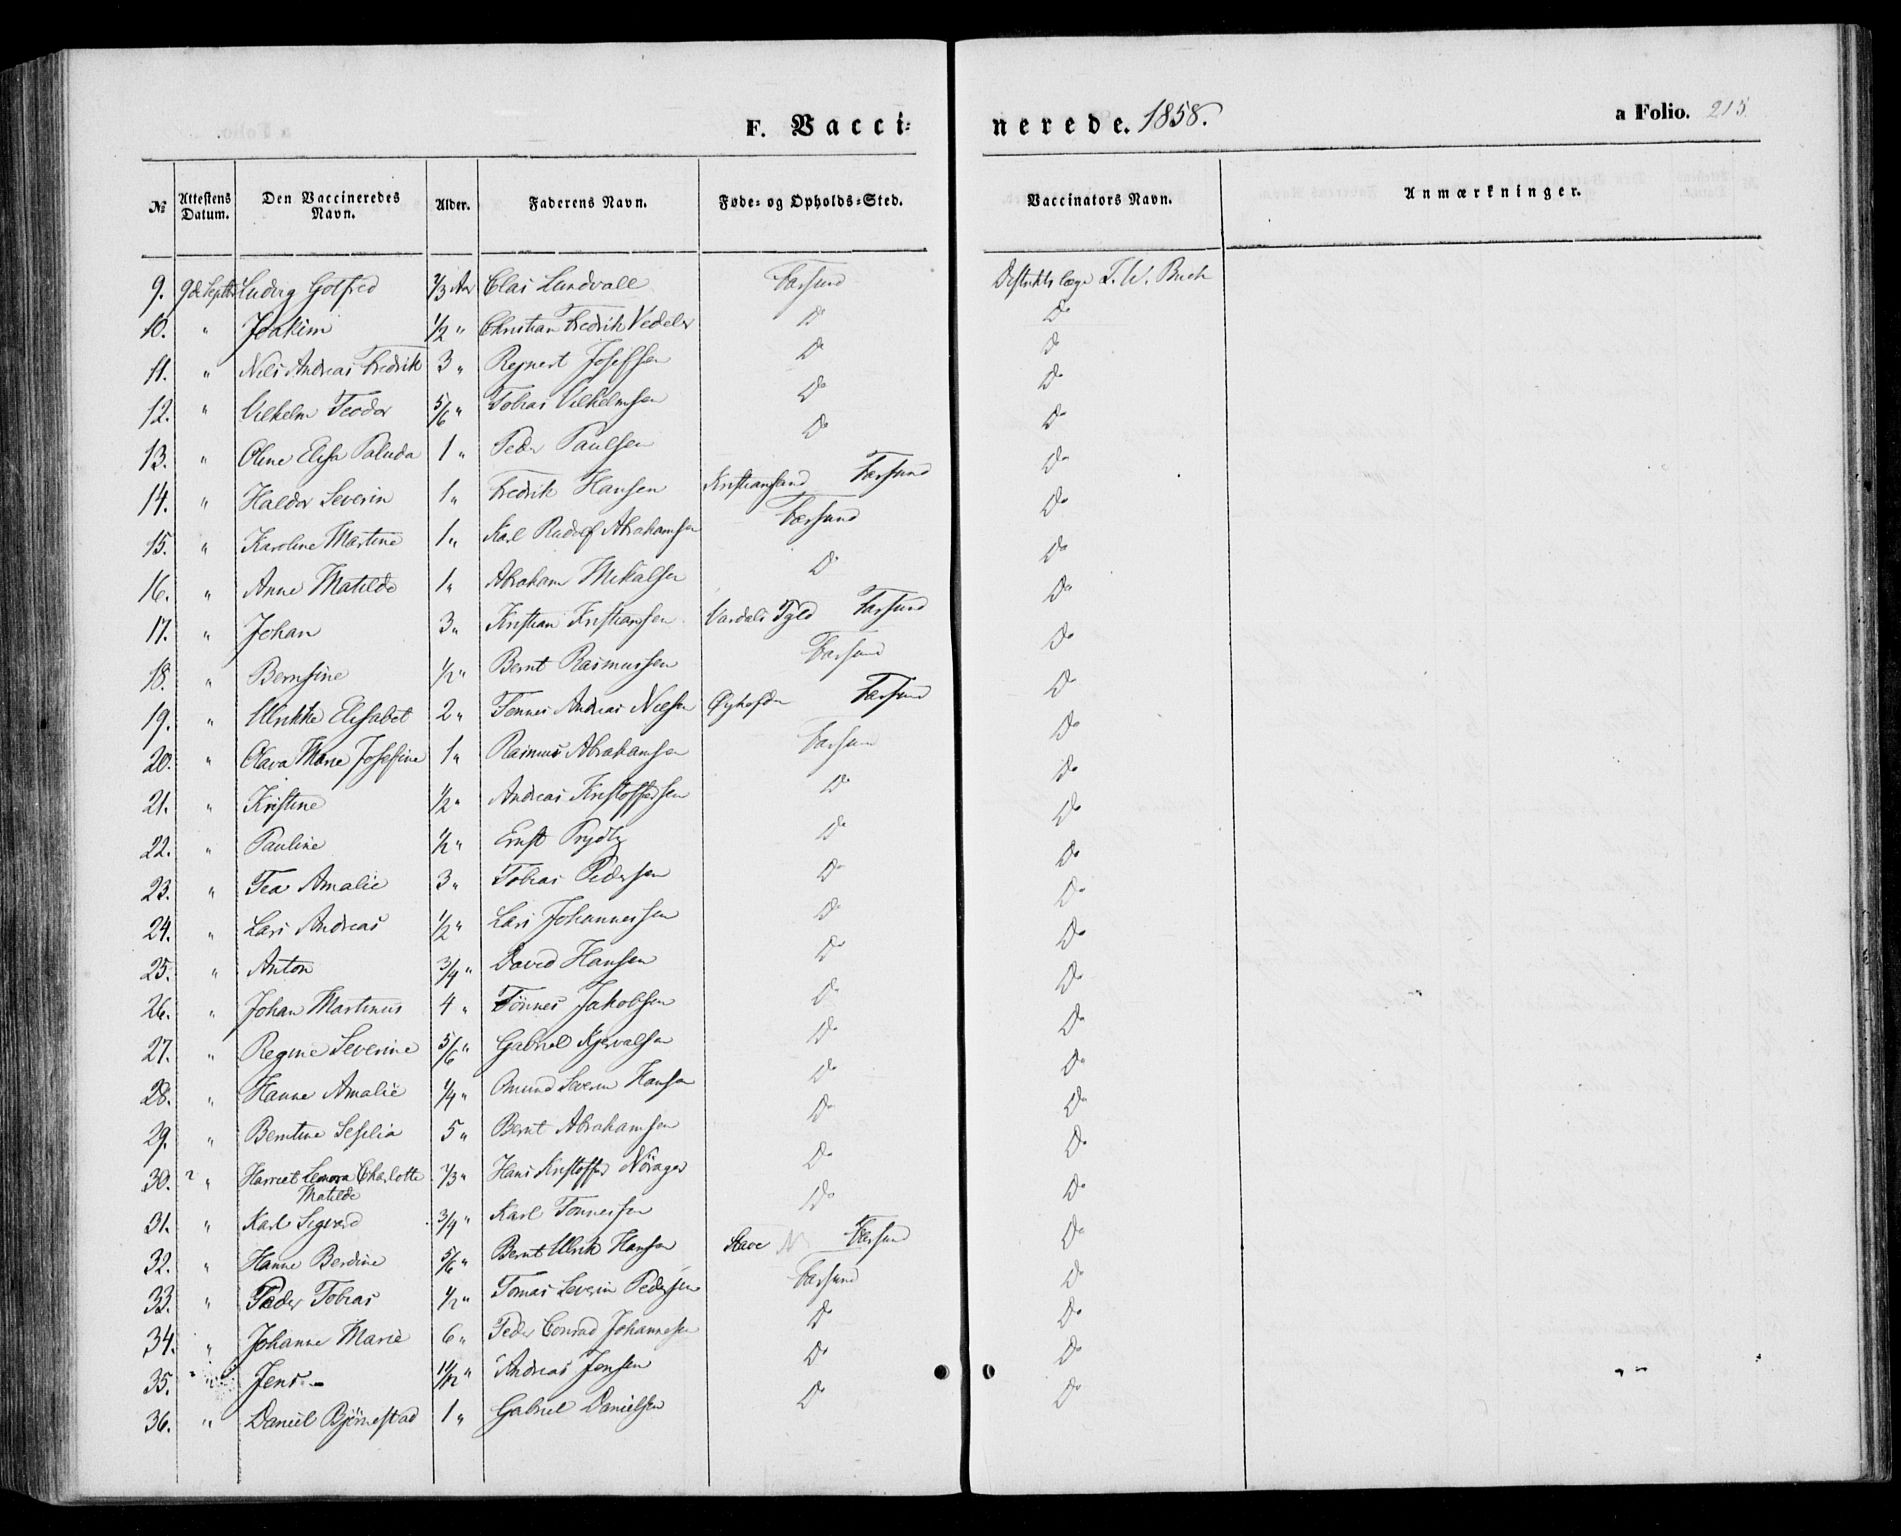 F. Vacci=
nerede. 1858.
a Folio. 215.
№ Attestens Datum. Den Vaccineredes Navn. Alder. Faderens Navn. Føde- og Opholds-Sted. Vaccinators Navn. Anmærkninger.
9. 9de Septbr Ludvig Gotfred 2/3 Aar Clas Lundvall Farsund Distriktslæge F. W. Buch
10. " Joakim 1/2 " Christian Fredrik Vedeler Do Do
11. " Nels Andreas Fredrik 3 " Regnert Josefsen Do Do
12. " Vilhelm Teodor 5/6 " Tobias Vilhelmsen Do Do
13. " Oline Elisa Paluda 1 " Peder Paulsen Do Do
14. " Haldor Severin 1 " Fredrik Hansen Kristiansand Farsund Do
15. " Karoline Martine 1 " Karl Rudolf Abrahamsen Farsund Do
16. " Anne Matilde 1 " Abraham Mikalsen Do Do
17. " Johan 3 " Kristian Kristiansen Vardals Tgld Farsund Do
18. " Bernsine 1/2 " Bernt Rasmussen Farsund Do
19. " Ulrikke Elisabet 2 " Tønnes Andreas Nielsen Farsund Do
20. " Olava Marie Josefine 1 " Rasmus Abrahamsen Farsund Do
21. " Kristine 1/2 " Andreas Kristoffersen Do Do
22. " Pauline 1/2 " Ernst Prydtz Do Do
23. " Tea Amalie 3 " Tobias Pedersen Do Do
24. " Lars Andreas 1/2 " Lars Johannessen Do Do
25. " Anton 3/4 " David Hansen Do Do
26. " Johan Martinus 4 " Tönnes Jakobsen Do Do
27. " Regine Severine 5/6 " Gabriel Do Do
28. " Hanne Amalie 1/4 " Omund Severin Hansen Do Do
29. " Berntine Sesilia 5 " Bernt Abrahamsen Do Do
30. " Harriet Lenora Charlotte Matilde 2/3 " Hans Kristoffer Nörager Do Do
31. " Karl Sigvard 3/4 " Karl Tønnessen Do Do
32. " Hanne Berdine 5/6 " Bernt Ulrik Hansen Farsund Do
33. " Peder Tobias 1/2 " Tomas Severin Pedersen Farsund Do
34. " Johanne Marie 6 " Peder Conrad Johannesen Do Do
35. " Jens 11/12 " Andreas Jensen Do Do
36. " Daniel Björnestad 1 " Gabriel Danielsen Do Do